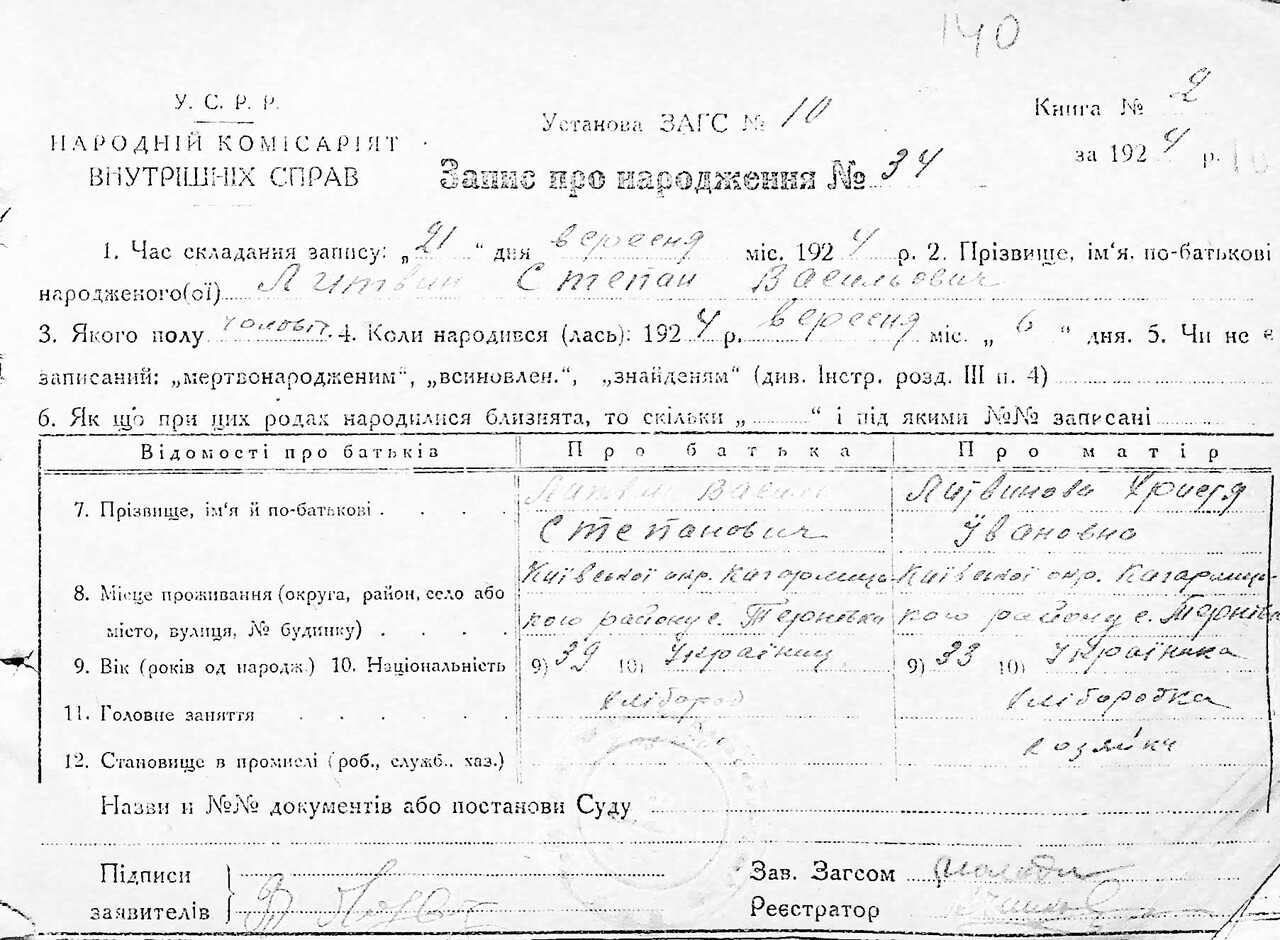 140
У. С. Р. Р.
НАРОДНІЙ КОМІСАРІЯТ
ВНУТРІШНІХ СПРАВ
Установа ЗАГС № 10
Книга № 2
за 1924 р.
Запис про народження № 34
1. Час складання запису: „21“ дня вересня міс. 1924 р. 2. Прізвище, ім'я, по-батькові
народженого(ої) Литвин Степан Васильович
3. Якого полу чоловіч. 4. Коли народився (лась): 1924 р. вересня міс. „6“ дня. 5. Чи не є
записаний: „мертвонародженим“, „всиновлен.“, „знайденям“ (див. Інстр. розд. III п. 4)
6. Як що при цих родах народилися близнята, то скільки „ “ і під якими №№ записані
Відомості про батьків Про батька Про матір
7. Прізвище, ім'я й по-батькові Литвин Василь Литвинова Христя
Степанович Івановна
8. Місце проживання (округа, район, село або Київської окр. Кагарлиць- Київської окр. Кагарлиць-
місто, вулиця, № будинку) кого району с. Тернівка кого району с. Тернівка
9. Вік (років од народж.) 10. Національність 9) 39 10) Українец 9) 33 10) Українка
11. Головне заняття хлібороб хліборобка
12. Становище в промислі (роб., служб., хаз.) хозяйка
Назви и №№ документів або постанови Суду
Підписи
заявителів
Зав. Загсом
Реєстратор